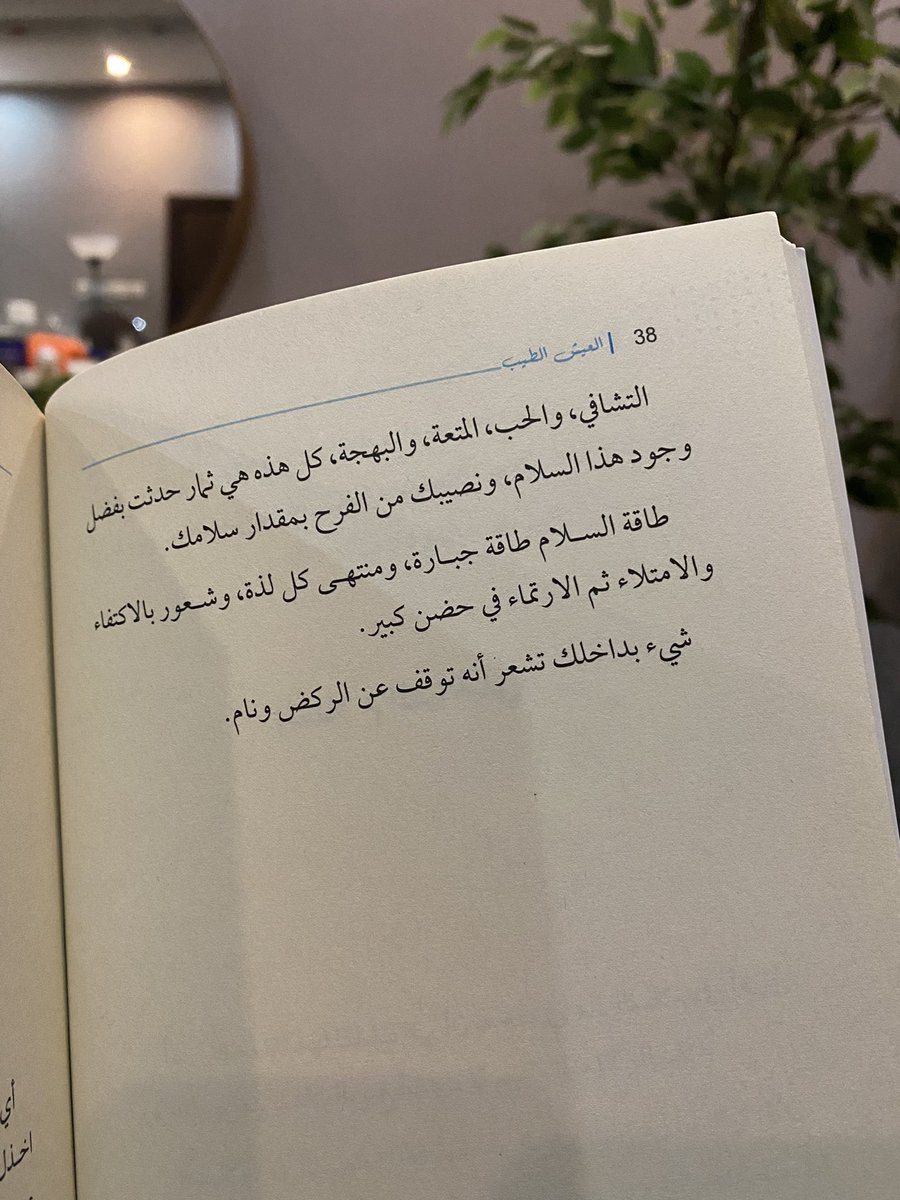 38 | العيش الطيب
التشافي، والحب، المتعة، والبهجة، كل هذه هي ثمار حدثت بفضل
وجود هذا السلام، ونصيبك من الفرح بمقدار سلامك.
طاقة السلام طاقة جبارة، ومنتهى كل لذة، وشعور بالاكتفاء
والامتلاء ثم الارتماء في حضن كبير.
شيء بداخلك تشعر أنه توقف عن الركض ونام.
أي